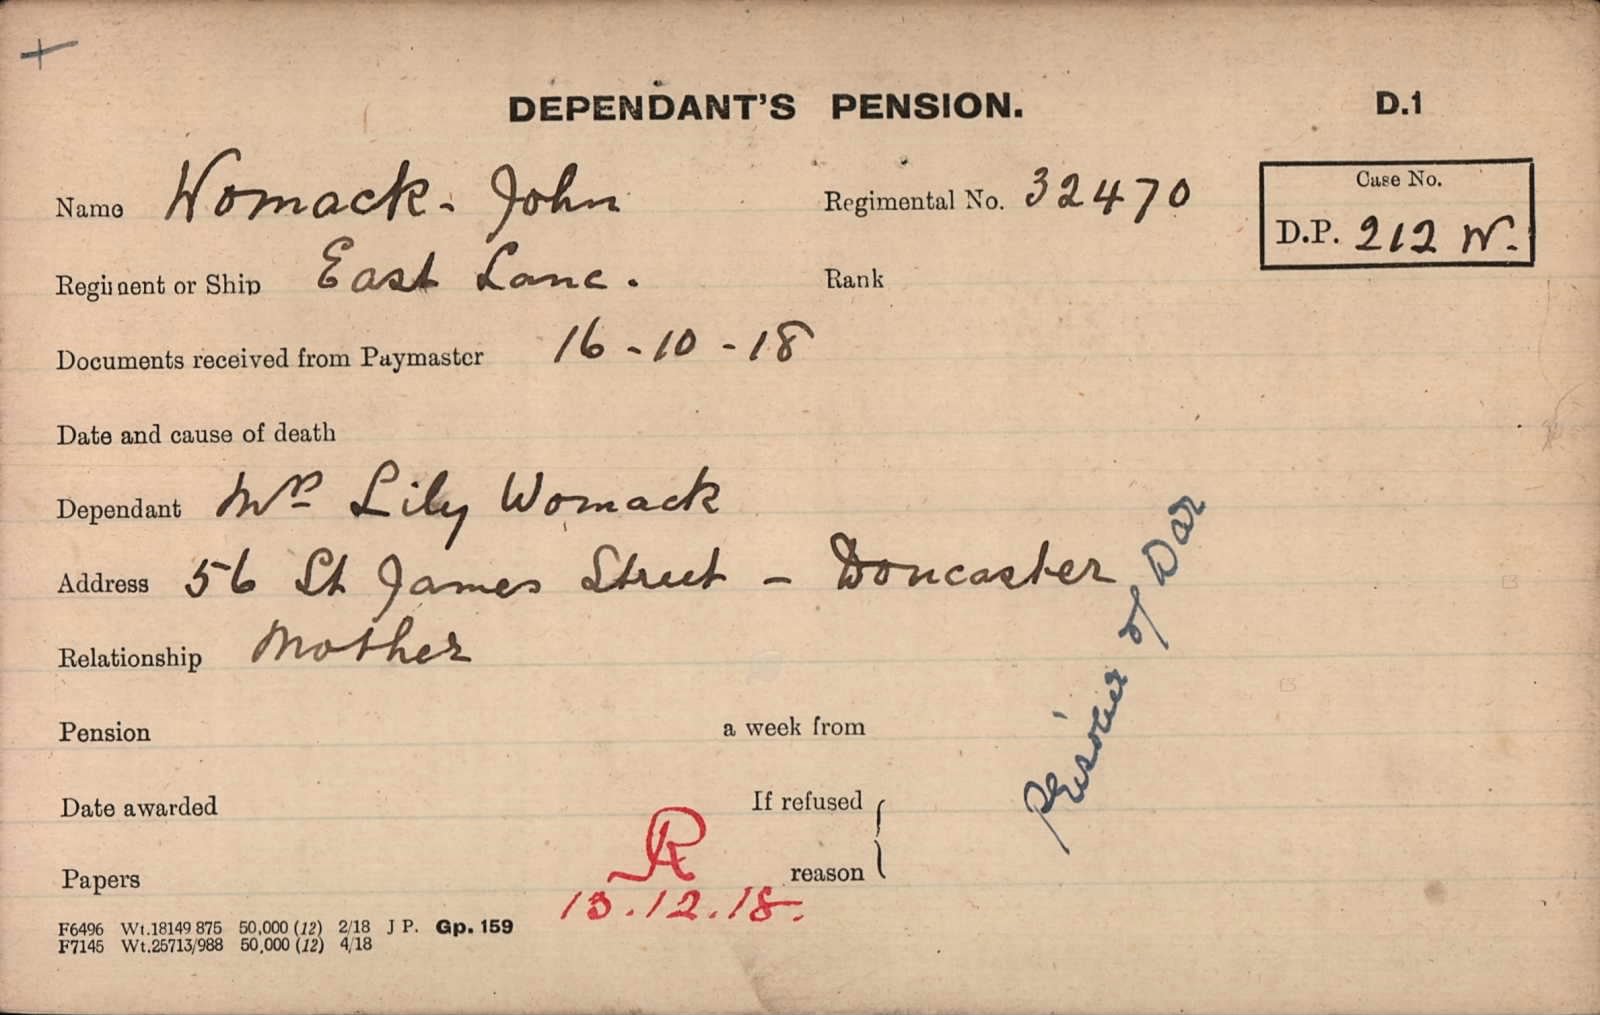 DEPENDANT'S PENSION. D.1
Name Womack - John Regimental No. 32470
Case No.
D.P. 212 W.
Regiment or Ship East Lanc. Rank
Documents received from Paymaster 16-10-18
Date and cause of death
Dependant Mrs Lily Womack
Address 56 St James Street - Doncaster
Relationship Mother
Prisoner of War
Pension a week from
Date awarded If refused
Papers R reason
13.12.18.
F6496 Wt.18149 875 50,000 (12) 2/18 J P. Gp. 159
F7145 Wt.25713/988 50,000 (12) 4/18